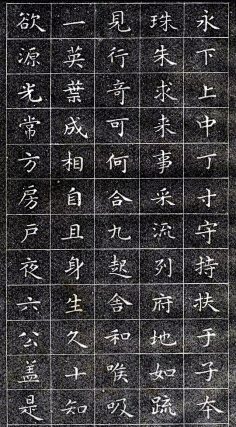 永下上中丁寸守持扶于子夲
珠朱求来事采流列府地如疏
見行竒可何合九起舍和喉吸
一英葉成相自且身生久十知
欲源光常方房戶夜六公盖是